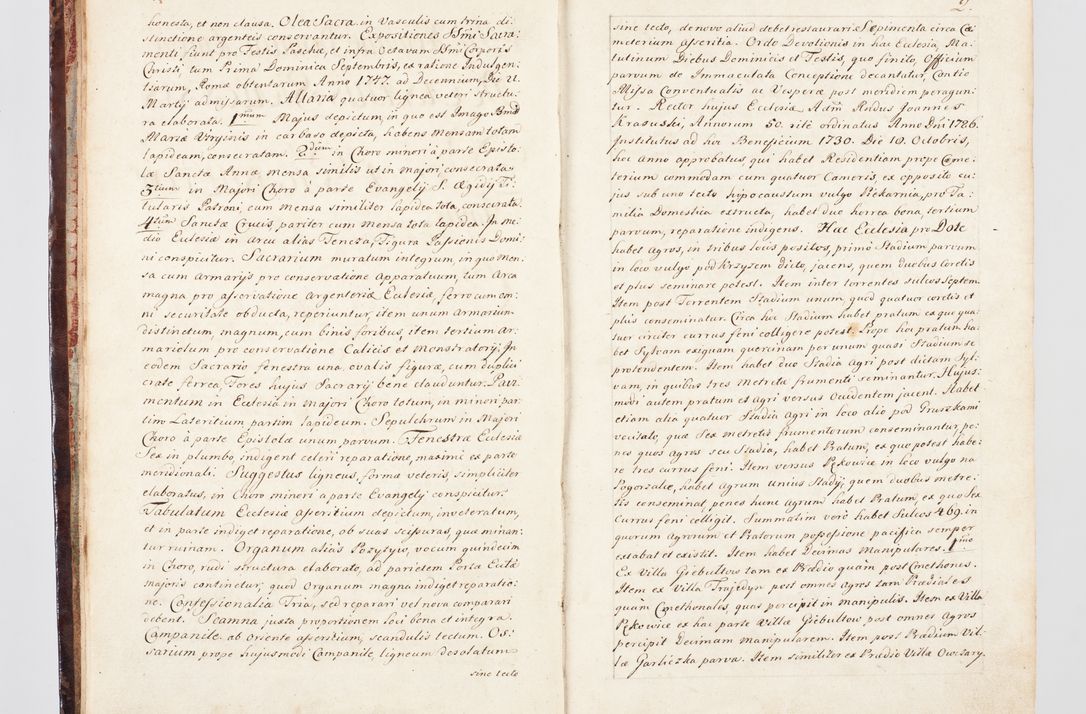 honesta, et non clausa. Olea Sacra in Vasculis cum trina di:
stinctione argenteis conservantur. Expositiones SSmi Sacra:
menti fiunt pro Festis Paschæ, et infra Octavam SSmi Corporis
Christi, tum Prima Dominica Septembris, ex ratione Indulgen:
tiarum, Romæ obtentarum Anno 1747. ad Decennium, Die 21.
Martij admissarum. Altaria quatuor lignea veteri structu:
ra elaborata. 1mum Majus depictum, in quo est Imago Bmæ
Mariæ Virginis in carbaso depicta, habens Mensam totam
lapideam, consecratam. 2dum in Choro minori à parte Episto:
læ Sanctæ Annæ mensa similis ut in majori, consecrata
3tium in Majori Choro à parte Evangelij S. Ægidij Ti:
tularis Patroni, cum mensa similiter lapidea tota, consecrata.
4tum Sanctæ Crucis, pariter cum Mensa tota lapidea. In me:
dio Ecclesiæ in arcu alias Tencza, Figura Passionis Domi:
ni conspicitur. Sacrarium muratum integrum, in quo men:
sa cum armarijs pro conservatione apparatuum, tum Arca
magna pro asservatione argenteriæ Ecclesiæ, ferro cum om:
ni securitate obducta, reperiuntur, item unum armarium
distinctum, magnum, cum binis foribus, item tertium ar:
mariolum pro conservatione Calicis et Monstratorij. In
eodem Sacrario fenestra una ovalis figuræ, cum duplici
crate ferrea, Fores hujus Sacrarij bene clauduntur. Pavi:
mentum in Ecclesia in Majori Choro totum, in minori par:
tim Lateritium partim lapideum. Sepulchrum in Majori
Choro à parte Epistolæ unum parvum. Fenestræ Ecclesiæ
Sex in plumbo, indigent celeri reparatione, maximè ex parte
meridionali. Suggestus ligneus, formæ veteris, simpliciter
elaboratus, in Choro minori à parte Evangelij conspicitur.
Tabulatum Ecclesiæ asseritium depictum, inveteratum,
et in parte indiget reparatione, ob suas scissuras, quæ minan:
tur ruinam. Organum aliàs Pozytyw, vocum quindecim
in Choro, rudi structura elaborato, ad parietem Portæ Ecclæ
majoris continetur, quod organum magna indiget reparatio:
ne. Confessionalia Tria, sed reparari vel nova comparari
debent. Scamna juxta proportionem loci bona et integra.
Campanile ab oriente assertium, scandulis tectum. Os:
sarium prope hujusmodi Campanile, ligneum desolatum
sine tecto
9
sine tecto, de novo aliud debet restaurari. Sepimenta circa Cæ
meterium asseritia. Ordo Devotionis in hac Ecclesia, Ma:
tutinum Diebus Dominicis et Festis, quo finito, Officium
parvum de Immaculata Conceptione decantatur, Contio
Missa Conventualis ac Vesperæ post meridiem peragun:
tur. Rector hujus Ecclesiæ Adm Rndus Joannes
Krasuski, Annorum 50. ritè ordinatus Anno Dni 1726.
Institutus ad hoc Beneficium 1730. Die 10. Octobris,
hoc anno approbatus, qui habet Residentiam prope Cæme:
terium commodam cum quatuor Cameris, ex opposito cu:
jus sub uno tecto hipocaustum vulgo Piekarnia, pro Fa:
milia Domestica extructa, habet duo horrea bona, tertium
parvum, reparatione indigens. Hæc Ecclesia pro Dote
habet agros, in tribus locis positos, primò Stadium parvum
in loco vulgo pod Krzyzem dicto, jacens, quem duobus coretis
et plus seminare potest. Item inter torrentes sulcos Septem.
Item post Torrentem Stadium unum, quod quatuor coretis et
plus conseminatur. Circa hoc Stadium habet pratum ex quo qua:
tuor circiter currus feni colligere potest. Prope hoc pratum ha:
bet Sylvam exiguam quercinam per unum quasi Stadium se
protendentem. Item habet duo Stadia agri post dictam Syl:
vam, in quibus tres Metretæ frumenti seminantur. Hujus:
modi autem pratum et agri versus Occidentem jacent. Habet
etiam alia quatuor Stadia agri in loco alio pod Gruszkami
vocitato, quæ Sex metretis frumentorum conseminantur, pe:
nes quos agros seu Stadia, habet Pratum, ex quo potest habe:
re tres currus feni. Item versus Pękowice in loco vulgo na
Pogorzalie, habet agrum unius Stadij, quem duobus metre:
tis conseminat, penes hunc agrum habet Pratum, ex quo Sex
Currus feni colligit. Summatim verò habet Sulcos 469. in
quorum agrorum et Pratorum possessione pacifica semper
extabat et existit. Item habet Decimas Manipulares. 1mo
Ex Villa Giebultow tam ex Prædio quàm post Cmethones.
Item ex Villa Trojedyn post omnes agros tam Prædiales
quàm Cmethonales, quas percipit in manipulis. Item ex Villa
Pękowice ex hac parte Villæ Giebultow post omnes agros
percipit Decimam manipularem. Item post Prædium Vil:
læ Garliczka parva. Item similiter ex Prædio Villæ Owczary.